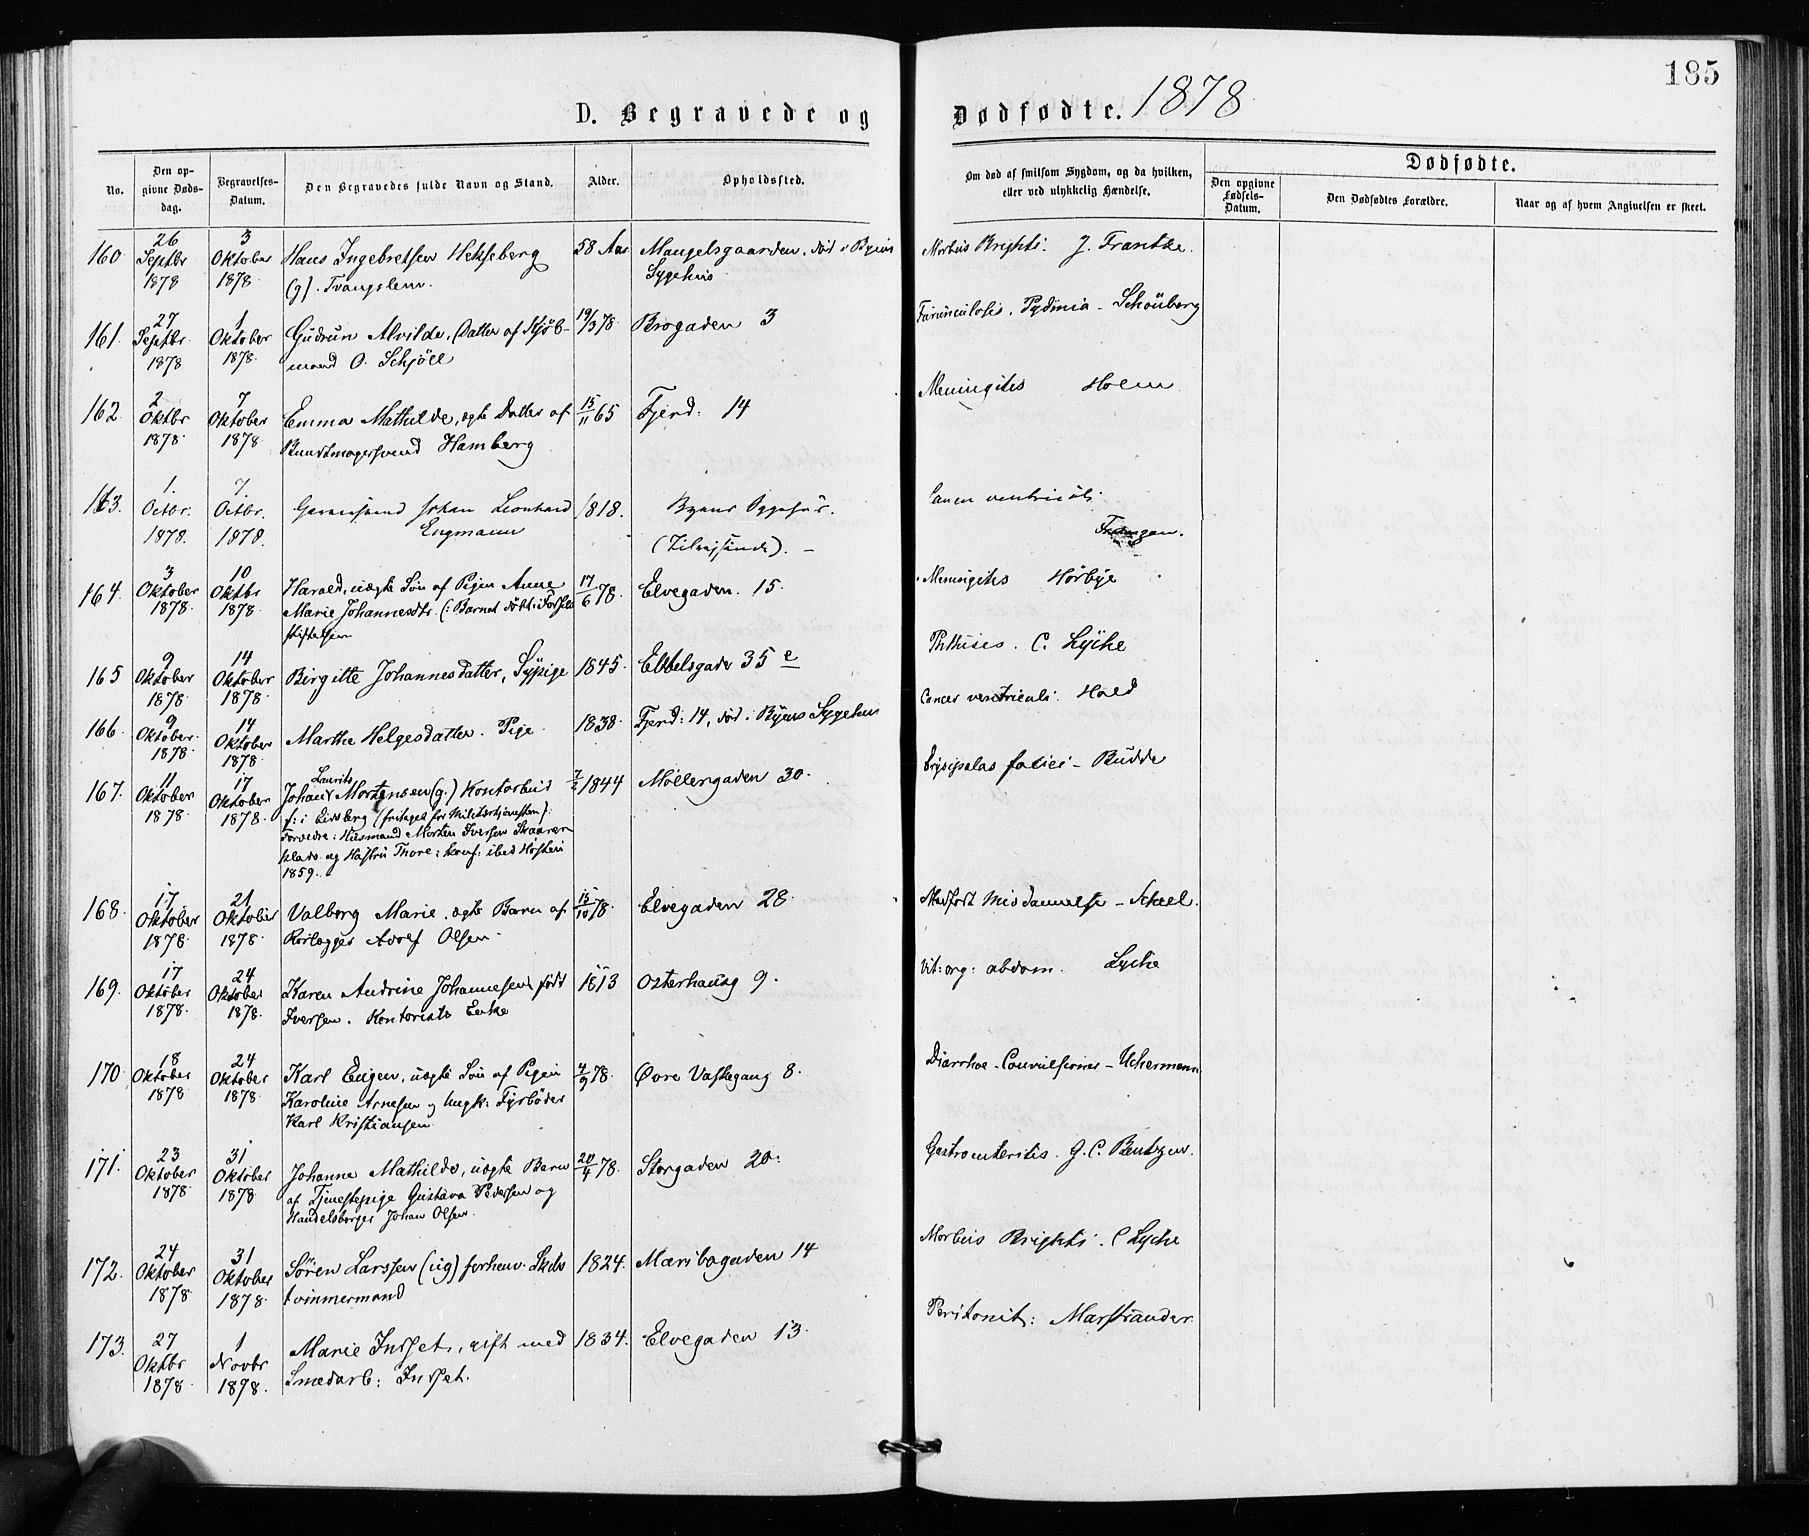 185
D. Begravede og Dødfødte. 1878
No.
Den opgivne Dødsdag.
Begravelses-Datum.
Den Begravedes fulde Navn og Stand.
Alder.
Opholdssted.
Om død af smitsom Sygdom, og da hvilken, eller ved ulykkelig Hændelse.
Dødfødte.
Den opgivne Fødsels-Datum.
Den Dødfødtes Forældre.
Naar og af hvem Angivelsen er skeet.
160 26 Septbr 1878 3 Oktober 1878 Hans Ingebretsen Hekseberg 58 Aar Mangelsgaarden, død i Byens Morbus Brighti: J. Frantze.
(g). Tvangslem. Sygehus
161. 27 Septbr. 1878 1 Oktober 1878 Gudrun Alvilde, (Datter af Kjøb- 19/3 78 Brogaden 3 Furunculosis, Pydmia - Schønberg
mand O. Schjøll
162 2 Oktbr 1878 7 Oktober 1878 Emma Mathilde, ægte Datter af 15/11 65 Fjerd: 14 Meningitis Holm
Buntmagersvend Hamberg
163. 1. Octbr. 1878. 7. Octbr. 1878. Johan Leonhard 1818. Byens Sygehus. Cancer ventriculi.
Engmann (Tilreisende). - Franzen.
164. 3 Oktober 1878 10 Oktbr 1878 Harald, uægte Søn af Pigen Anne 17/6 78. Elvegaden. 15. Meningitis Hørbye
Marie Johannesdtr. (: Barnet døbt i Fødsels
stiftelsen
165 9 Oktober 1878 14 Oktober 1878. Birgitte Johannesdatter, Sypige 1845. Ebbelsgade 35 e Phthisis. C. Lyche
166. 9 Oktober. 1878 14 Oktober 1878. Marthe Helgesdatter. Pige. 1838. Fjerd: 14, død i Byens Sygehus Cancer ventriculi: Hald
167. 11 Oktober 1878 17 Oktober 1878. Laurits
Johan Mortensen (g.) Kontorbud 7/2 1844 Møllergaden 30. Erysipelas faciei - Budde
f: i Eidsberg (fritaget for Militærtjenesten).
Forældre: Husmand Morten Iversen Skaaren
plads og Hustru Thore: konf: ibed Høsten
1859.
168. 17. Oktober 1878 21 Oktober 1878. Valborg Marie, ægte Barn af 15/10 78. Elvegaden 28. Medfødt Misdannelse - Scheel.
Rørlægger Adolf Olsen.
169. 17 Oktober 1878. 24 Oktober 1878. Karen Andrine Johannesen født 1813 Osterhausg 9. Vit: org: abdom. Lyche
Iversen. Kontorists Enke
170. 18 Oktober 1878 24 Oktober 1878. Karl Eugen, uægte Søn af Pigen 4/9 78. Øvre Vaskegang 8. Diarrhoe - Convulsioner - Uchermann
Karoline Arnesen og Ungk: Fyrbøder
Karl Kristiansen
171. 23 Oktober 1878 31 Oktober 1878 Johanne Mathilde, uægte Barn 20/4 78. Storgaden 20. Gastroenteritis. G. C. Bentzen.
af Tjenestepige Gustava Pedersen og
Handelsborger Johan Olsen.
172. 24 Oktober 1878 31 Oktober 1878. Søren Larssen (ug) forhenv. Skibs 1824. Maribogaden 14 Morbus Brighti. C Lyche
tømmermand
173. 27 Oktbr 1878 1 Novbr 1878. Marie Indset, gift med 1834. Elvegaden 13. Peritonit: Marstrander
Smedarb: Indset.